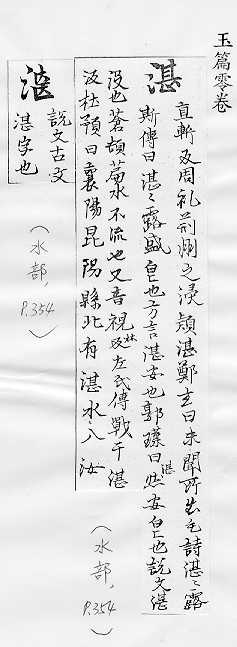 玉篇零卷
湛 直斬反周礼荊州之浸潁湛鄭玄曰未聞所出毛詩湛〻露
斯傳曰湛〻露盛皃也方言湛安也郭璞曰湛然安皃也說文湛
沒也蒼頡篇水不流也又音視林反左氏傳戰于湛
汳杜預曰襄陽昆陽縣北有湛水入汝
(水部, P.354)
說文古文
湛字也
(水部, P.354)